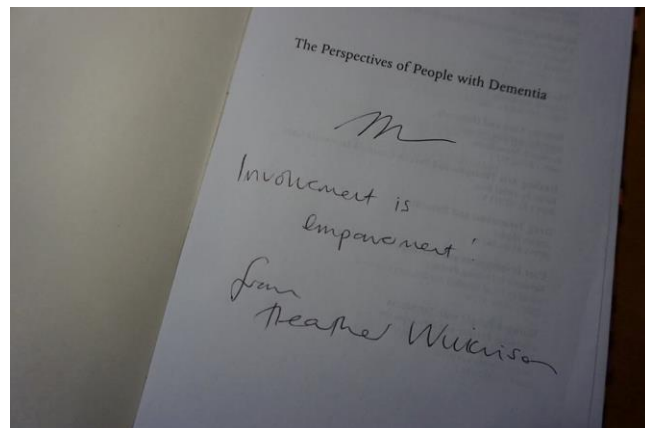 The Perspectives of People with Dementia
Involvement is
empowerment!
from
Heather Wilkinson